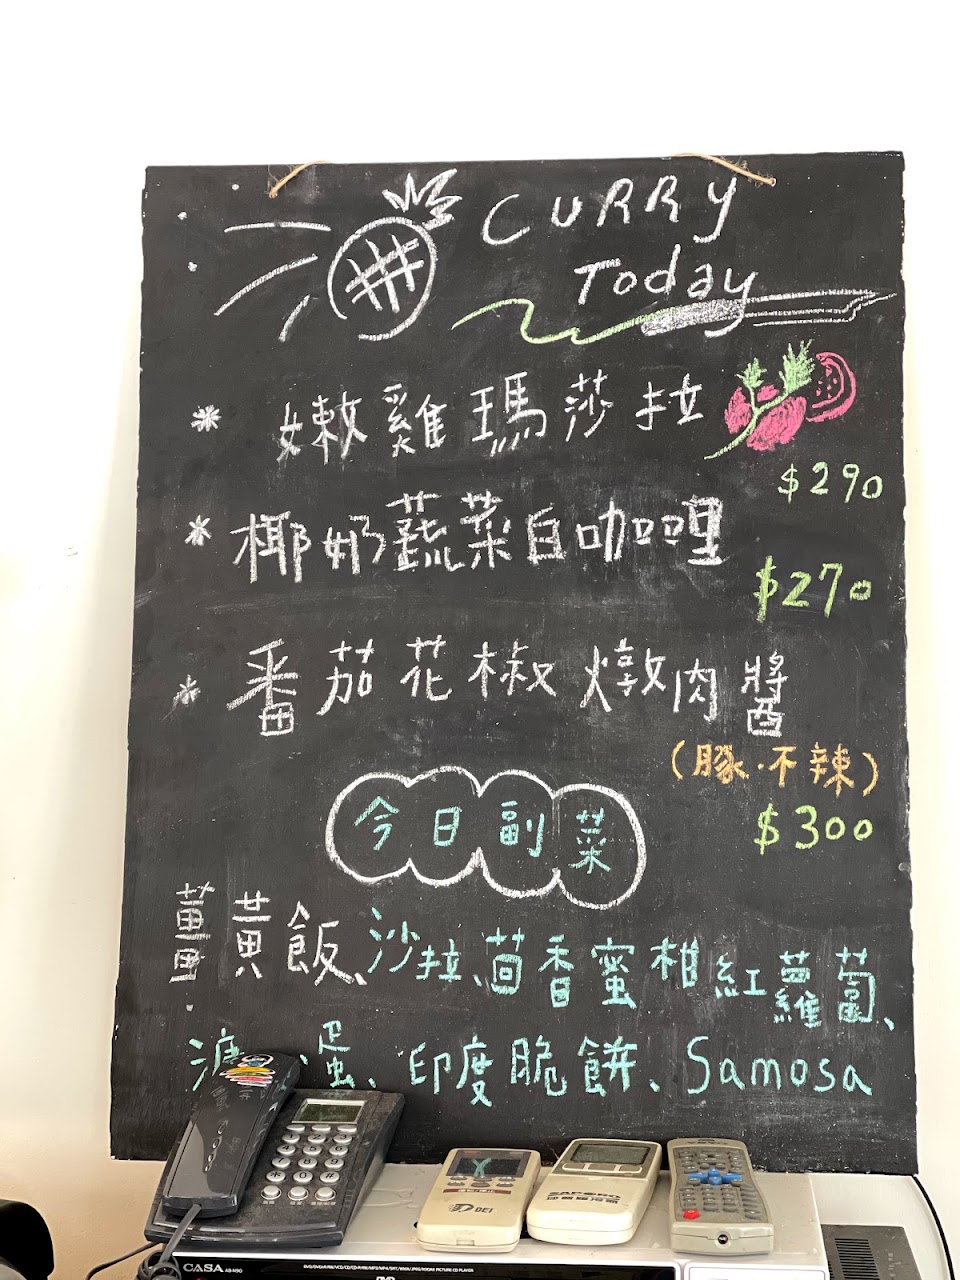 CURRY
Today
* 嫩雞瑪莎拉
$290
* 椰奶蔬菜白咖哩
$270
* 番茄花椒燉肉醬
(豚·不辣)
$300
今日副菜
薑黃飯、沙拉、茴香蜜柑紅蘿蔔、
蛋、印度脆餅、Samosa
DEI
SAMPO
CASA